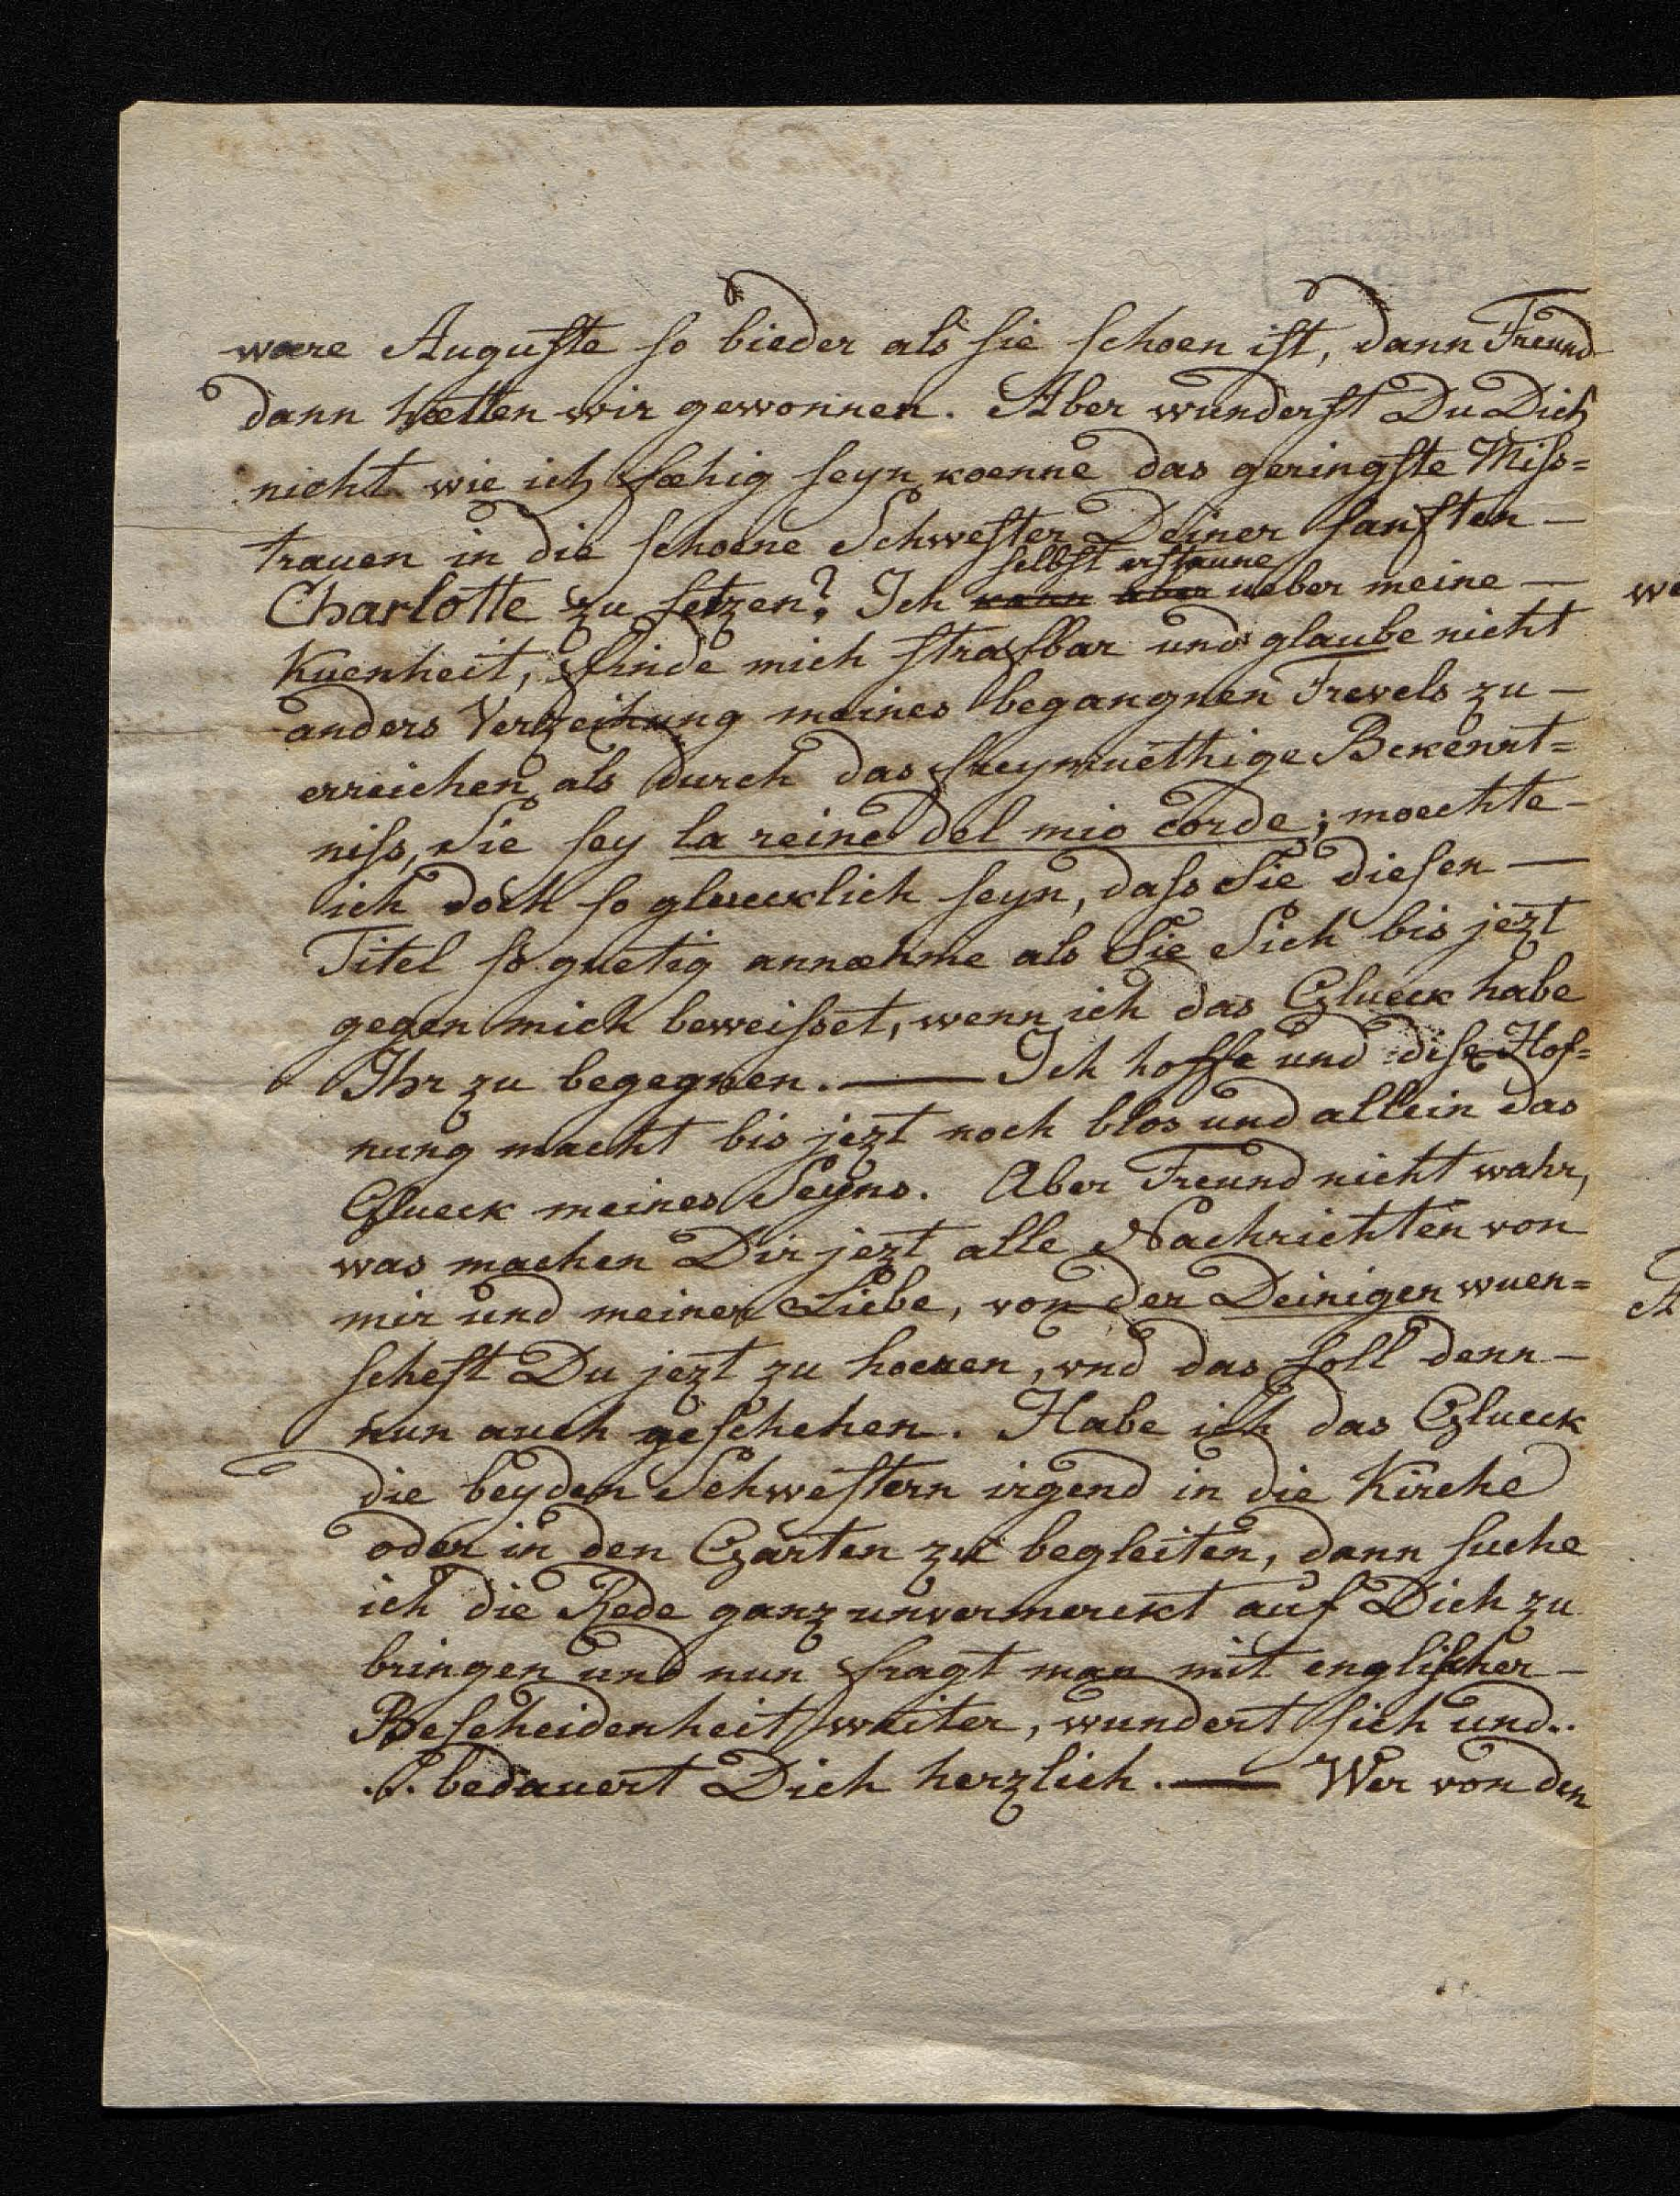 wære Auguſte ſo bieder als ſie ſchoen iſt, dann Freund
dann hætten wir gewonnen. Aber wunderſt Du Dich
nicht wie ich fæhig ſeyn koenne das geringſte Miſs=
trauen in die ſchoene Schweſter Deiner ſanften —
selbſt erſtaune
Charlotte zu ſetzen? Ich kann aber ueber meine —
Kuenheit, finde mich ſtrafbar und glaube nicht
anders Verzeihung meines begangnen Frevels zu —
erreichen als durch das freymuethige Bekennt=
niſs, Sie ſey la reine del mio corde; moechte —
ich doch ſo gluecklich ſeyn, daſs Sie dieſen —
Titel ſo guetig annæhme als Sie Sich bis jezt
gegen mich beweiſset, wenn ich das Glueck habe
Ihr zu begegnen. — Ich hoffe und diſe Hof=
nung macht bis jezt noch blos und allein das
Glueck meines Seyns. Aber Freund nicht wahr,
was machen Dir jezt alle Nachrichten von
mir und meiner Liebe, von der Deinigen wuen=
ſcheſt Du jezt zu hoeren, und das ſoll denn —
nun auch geſchehen. Habe ich das Glueck
die beyden Schweſtern irgend in die Kirche
oder in den Garten zu begleiten, dann ſuche
ich die Rede ganz unvermerckt auf Dich zu
bringen und nun fragt man mit engliſcher —
Beſcheidenheit weiter, wundert ſich und..
.. bedauert Dich herzlich. — Wer von den
we